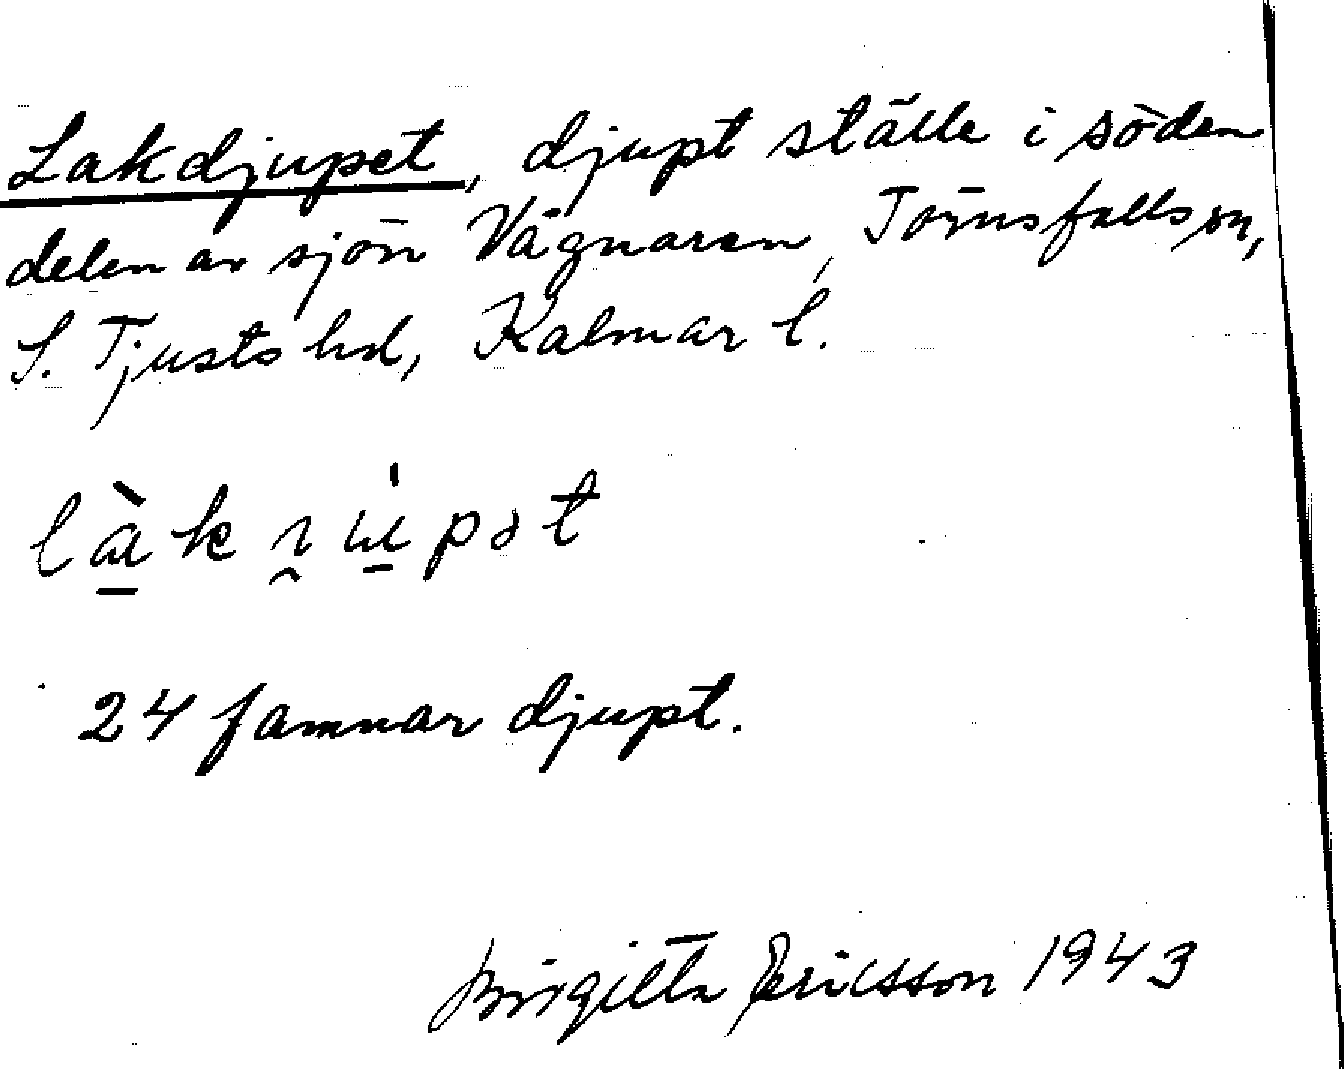 Lakdjupet, djupt ställe i söden
delen av sjön Vägnaren, Törnsfalls sn,
S. Tjusts hd, Kalmar l.
24 famnar djupt.
Birgitta Ericsson 1943